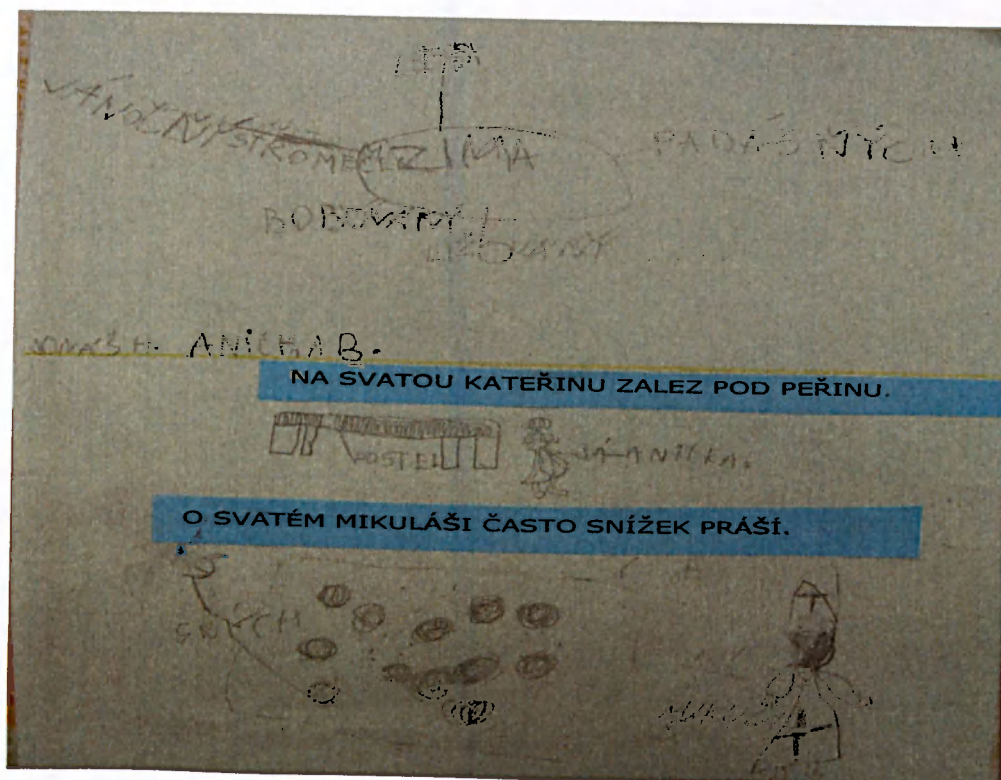 VÁNOČNÍ STROMEČEK
ZIMA
PADÁ SNÝCH
BOBOVÁNÝ
JONÁŠ H. ANIČKA B.
NA SVATOU KATEŘINU ZALEZ POD PEŘINU.
POSTEL
JÁ-ANIČKA.
O SVATÉM MIKULÁŠI ČASTO SNÍŽEK PRÁŠÍ.
SNÝCH